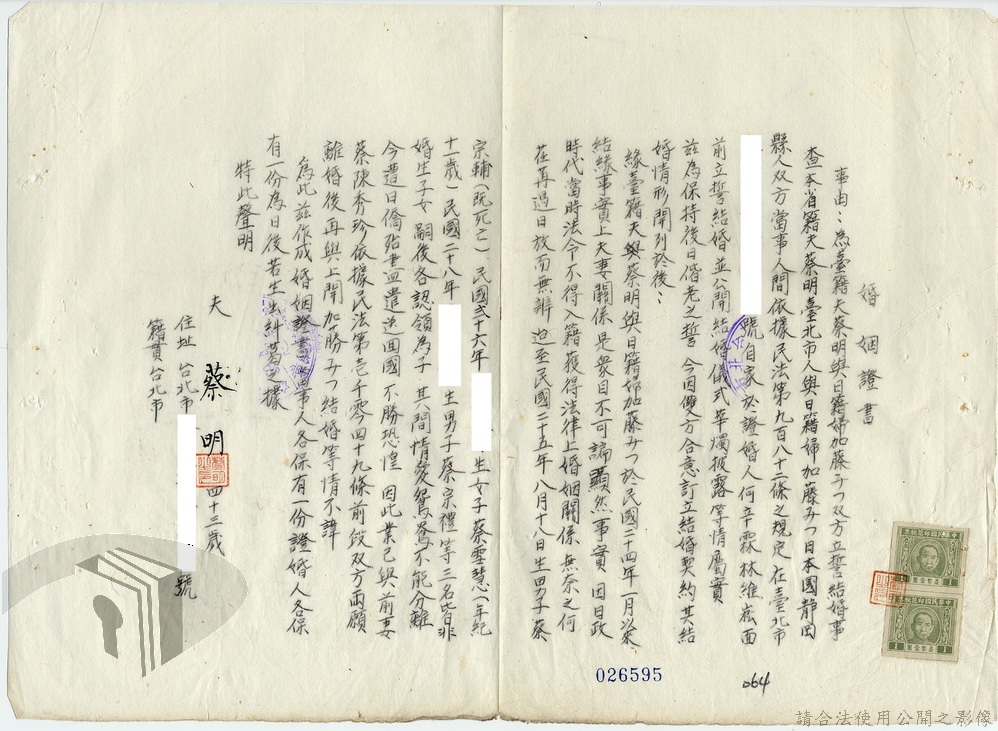 婚姻證書
事由：為臺籍夫蔡明與日籍婦加藤みつ双方立誓結婚事
查本省籍夫蔡明臺北市人與日籍婦加藤みつ日本國靜岡
縣人双方當事人間依據民法第九百八十二條之規定在臺北市
號自家於證婚人何辛霖林維崧面
前立誓結婚並公開結婚儀式華燭披露等情屬實
茲為保持後日偕老之誓 今因雙方合意訂立結婚契約其結
婚情形開列於後：
緣臺籍夫與蔡明與日籍婦加藤みつ於民國二十四年一月以來
結緣事實上夫妻關係是衆目不可諦顯然事實 因日政
時代當時法令不得入籍獲得法律上婚姻關係 無奈之何
荏再過日放而無辦 迨至民國二十五年八月十八日生男子蔡
宗輔（既死亡） 民國弍十六年 生女子蔡雪慧（年紀
十一歲）民國二十八年 生男子蔡宗禮等三名皆非
婚生子女 嗣後各認領為子 其間情愛鴛鴦不能分離
今遭日僑殆盡遣送回國 不勝恐惶 因此業已與前妻
蔡陳秀珍依據民法第壱千零四十九條前段双方兩願
離婚後再與上開加藤みつ結婚等情不諱
為此茲作成婚姻證書當事人各保有一份證婚人各保
有一份為日後若生出糾葛之據
特此聲明
夫 蔡明 四十三歲
住址 台北市 號
籍貫 台北市
026595
064
請合法使用公開之影像